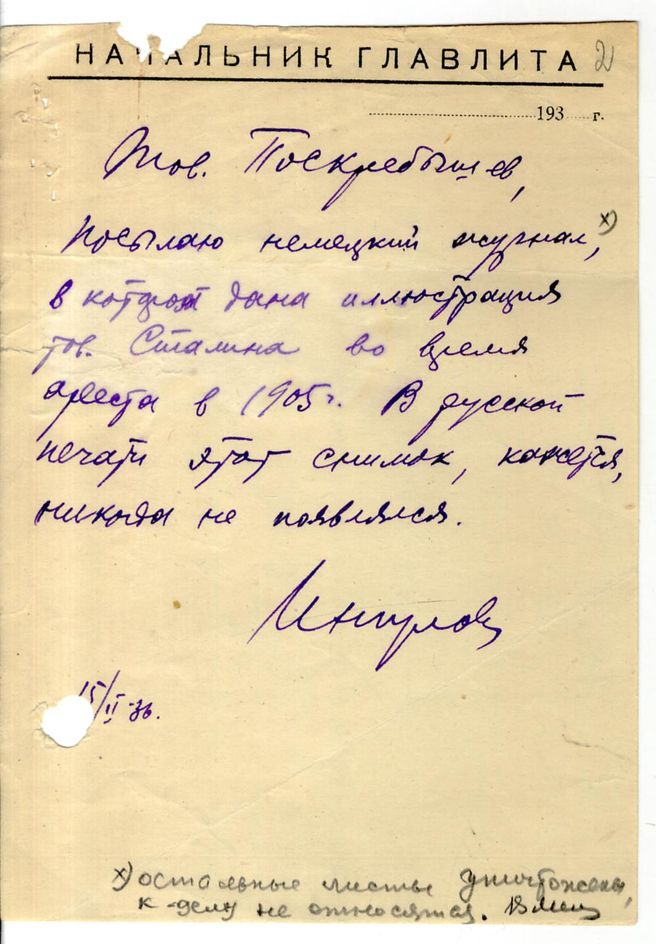 НАЧАЛЬНИК ГЛАВЛИТА 2
193 г.
Тов. Поскребышев,
посылаю немецкий журнал, х)
в котором дана иллюстрация
тов. Сталина во время
ареста в 1905 г. В русской
печати этот снимок, кажется,
никогда не появлялся.
Ингулов
15/II-36.
х) остальные листы уничтожены,
к делу не относятся.